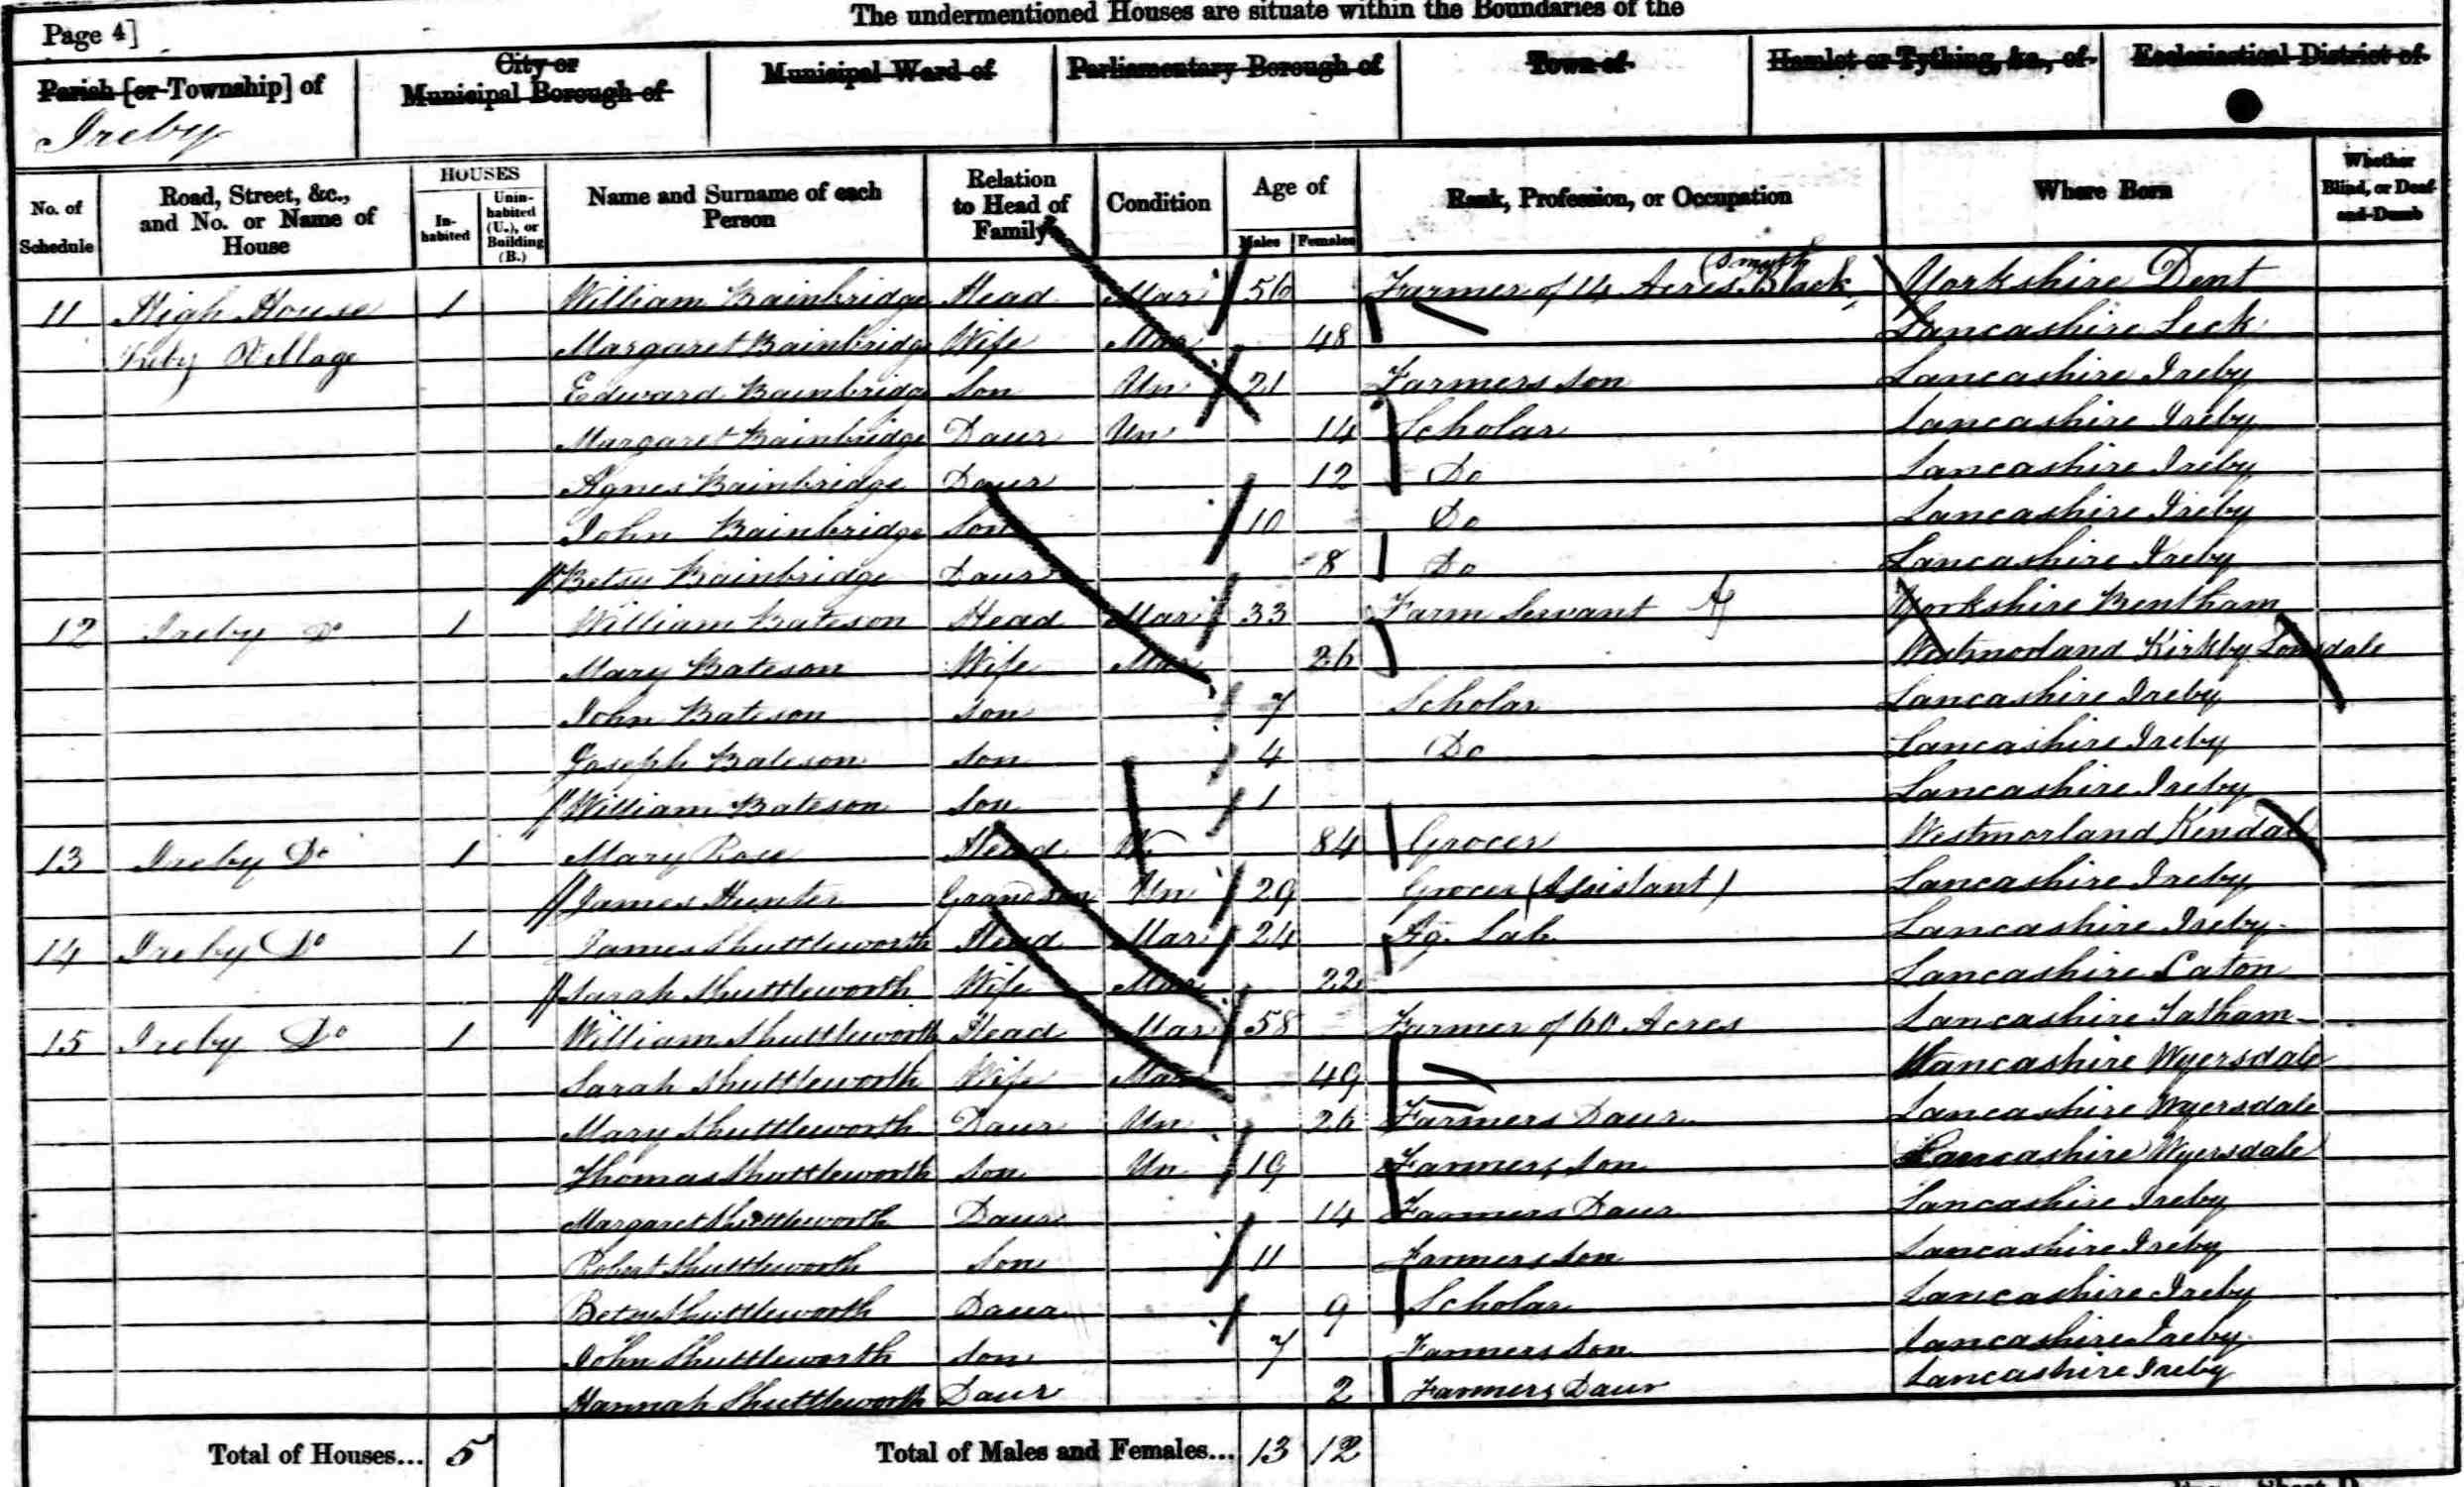 The undermentioned Houses are situate within the Boundaries of the
Page 4]
Parish [or Township] of
City or
Municipal Borough of
Municipal Ward of
Parliamentary Borough of
Town of
Hamlet or Tything, &c., of
Ecclesiastical District of
Ireby
No. of Schedule
Road, Street, &c., and No. or Name of House
HOUSES
In-habited
Unin-habited (U.), or Building (B.)
Name and Surname of each Person
Relation to Head of Family
Condition
Age of
Males Females
Rank, Profession, or Occupation
Where Born
Whether Blind, or Deaf-and-Dumb
11 High House 1 William Bainbridge Head Mar 56 Farmer of 14 Acres Black (Smith Yorkshire Dent
Ireby Village Margaret Bainbridge Wife Mar 48 Lancashire Leck
Edward Bainbridge Son Un 21 Farmers Son Lancashire Ireby
Margaret Bainbridge Daur Un 14 Scholar Lancashire Ireby
Agnes Bainbridge Daur 12 Do Lancashire Ireby
John Bainbridge Son 10 Do Lancashire Ireby
Betsy Bainbridge Daur 8 Do Lancashire Ireby
12 Ireby Do 1 William Bateson Head Mar 33 Farm Servant Yorkshire Bentham
Mary Bateson Wife Mar 26 Westmorland Kirkby Lonsdale
John Bateson Son 7 Scholar Lancashire Ireby
Joseph Bateson Son 4 Do Lancashire Ireby
William Bateson Son 1 Lancashire Ireby
13 Ireby Do 1 Mary Head W 84 Grocer Westmorland Kendal
James Hunter Grandson Un 29 Grocer (Assistant) Lancashire Ireby
14 Ireby Do 1 James Shuttleworth Head Mar 24 Ag. Lab. Lancashire Ireby
Sarah Shuttleworth Wife Mar 22 Lancashire Caton
15 Ireby Do 1 William Shuttleworth Head Mar 58 Farmer of 60 Acres Lancashire Tatham
Sarah Shuttleworth Wife Mar 49 Lancashire Wyersdale
Mary Shuttleworth Daur Un 26 Farmers Daur Lancashire Wyersdale
Thomas Shuttleworth Son Un 19 Farmers Son Lancashire Wyersdale
Margaret Shuttleworth Daur 14 Farmers Daur Lancashire Ireby
Robert Shuttleworth Son 11 Farmers Son Lancashire Ireby
Betsy Shuttleworth Daur 9 Scholar Lancashire Ireby
John Shuttleworth Son 7 Farmers Son Lancashire Ireby
Hannah Shuttleworth Daur 2 Farmers Daur Lancashire Ireby
Total of Houses... 5 Total of Males and Females... 13 12